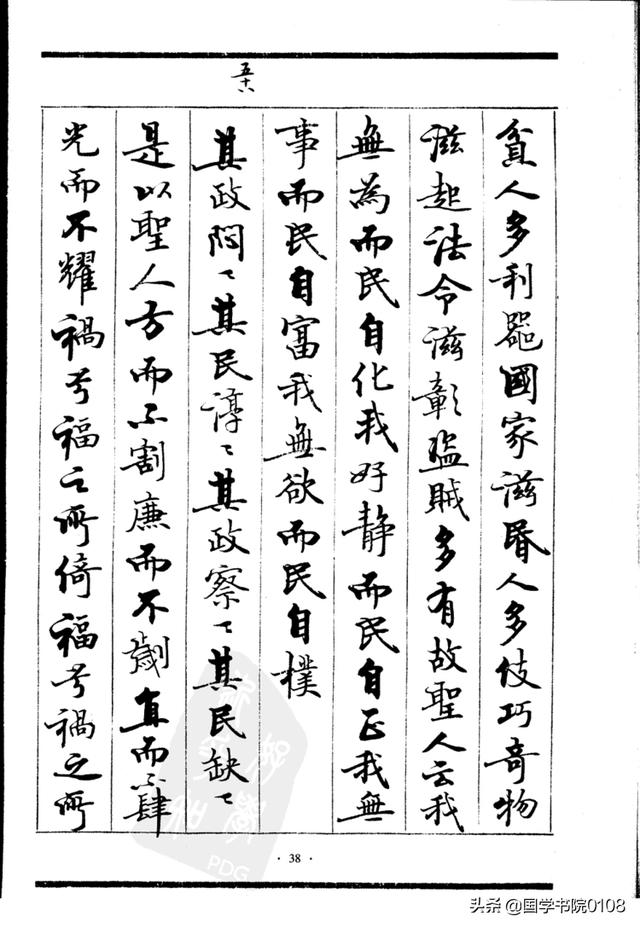 五十八
貧人多利器國家滋昬人多伎巧奇物
滋起法令滋彰盗賊多有故聖人云我
無為而民自化我好静而民自正我無
事而民自富我無欲而民自樸
其政悶〻其民淳〻其政察〻其民缺〻
是以聖人方而不割廉而不劌直而不肆
光而不耀禍兮福之所倚福兮禍之所
· 38 ·
PDG
头条 @国学书院0108